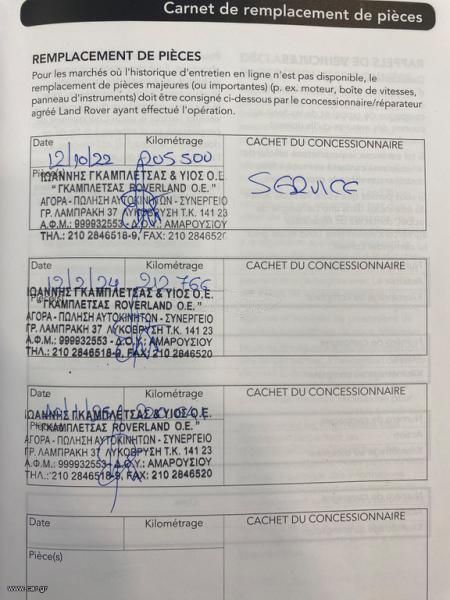 Carnet de remplacement de pièces
REMPLACEMENT DE PIÈCES
Pour les marchés où l'historique d'entretien en ligne n'est pas disponible, le
remplacement de pièces majeures (ou importantes) (p. ex. moteur, boîte de vitesses,
panneau d'instruments) doit être consigné ci-dessous par le concessionnaire/réparateur
agréé Land Rover ayant effectué l'opération.
Date Kilométrage CACHET DU CONCESSIONNAIRE
12/10/22 205500
Pièce(s)
ΙΩΑΝΝΗΣ ΓΚΑΜΠΛΕΤΣΑΣ & ΥΙΟΣ Ο.Ε.
" ΓΚΑΜΠΛΕΤΣΑΣ ROVERLAND O.E. "
ΑΓΟΡΑ - ΠΩΛΗΣΗ ΑΥΤΟΚΙΝΗΤΩΝ - ΣΥΝΕΡΓΕΙΟ
ΓΡ. ΛΑΜΠΡΑΚΗ 37 ΛΥΚΟΒΡΥΣΗ Τ.Κ. 141 23
Α.Φ.Μ.: 999932553 - Δ.Ο.Υ.: ΑΜΑΡΟΥΣΙΟΥ
ΤΗΛ.: 210 2846518-9, FAX: 210 2846520
SERVICE
Date Kilométrage CACHET DU CONCESSIONNAIRE
12/2/24 212766
ΙΩΑΝΝΗΣ ΓΚΑΜΠΛΕΤΣΑΣ & ΥΙΟΣ Ο.Ε.
" ΓΚΑΜΠΛΕΤΣΑΣ ROVERLAND O.E. "
ΑΓΟΡΑ - ΠΩΛΗΣΗ ΑΥΤΟΚΙΝΗΤΩΝ - ΣΥΝΕΡΓΕΙΟ
ΓΡ. ΛΑΜΠΡΑΚΗ 37 ΛΥΚΟΒΡΥΣΗ Τ.Κ. 141 23
Α.Φ.Μ.: 999932553 - Δ.Ο.Υ.: ΑΜΑΡΟΥΣΙΟΥ
ΤΗΛ.: 210 2846518-9, FAX: 210 2846520
Date Kilométrage CACHET DU CONCESSIONNAIRE
ΙΩΑΝΝΗΣ ΓΚΑΜΠΛΕΤΣΑΣ & ΥΙΟΣ Ο.Ε.
" ΓΚΑΜΠΛΕΤΣΑΣ ROVERLAND O.E. "
ΑΓΟΡΑ - ΠΩΛΗΣΗ ΑΥΤΟΚΙΝΗΤΩΝ - ΣΥΝΕΡΓΕΙΟ
ΓΡ. ΛΑΜΠΡΑΚΗ 37 ΛΥΚΟΒΡΥΣΗ Τ.Κ. 141 23
Α.Φ.Μ.: 999932553 - Δ.Ο.Υ.: ΑΜΑΡΟΥΣΙΟΥ
ΤΗΛ.: 210 2846518-9, FAX: 210 2846520
Date Kilométrage CACHET DU CONCESSIONNAIRE
Pièce(s)
www.car.gr